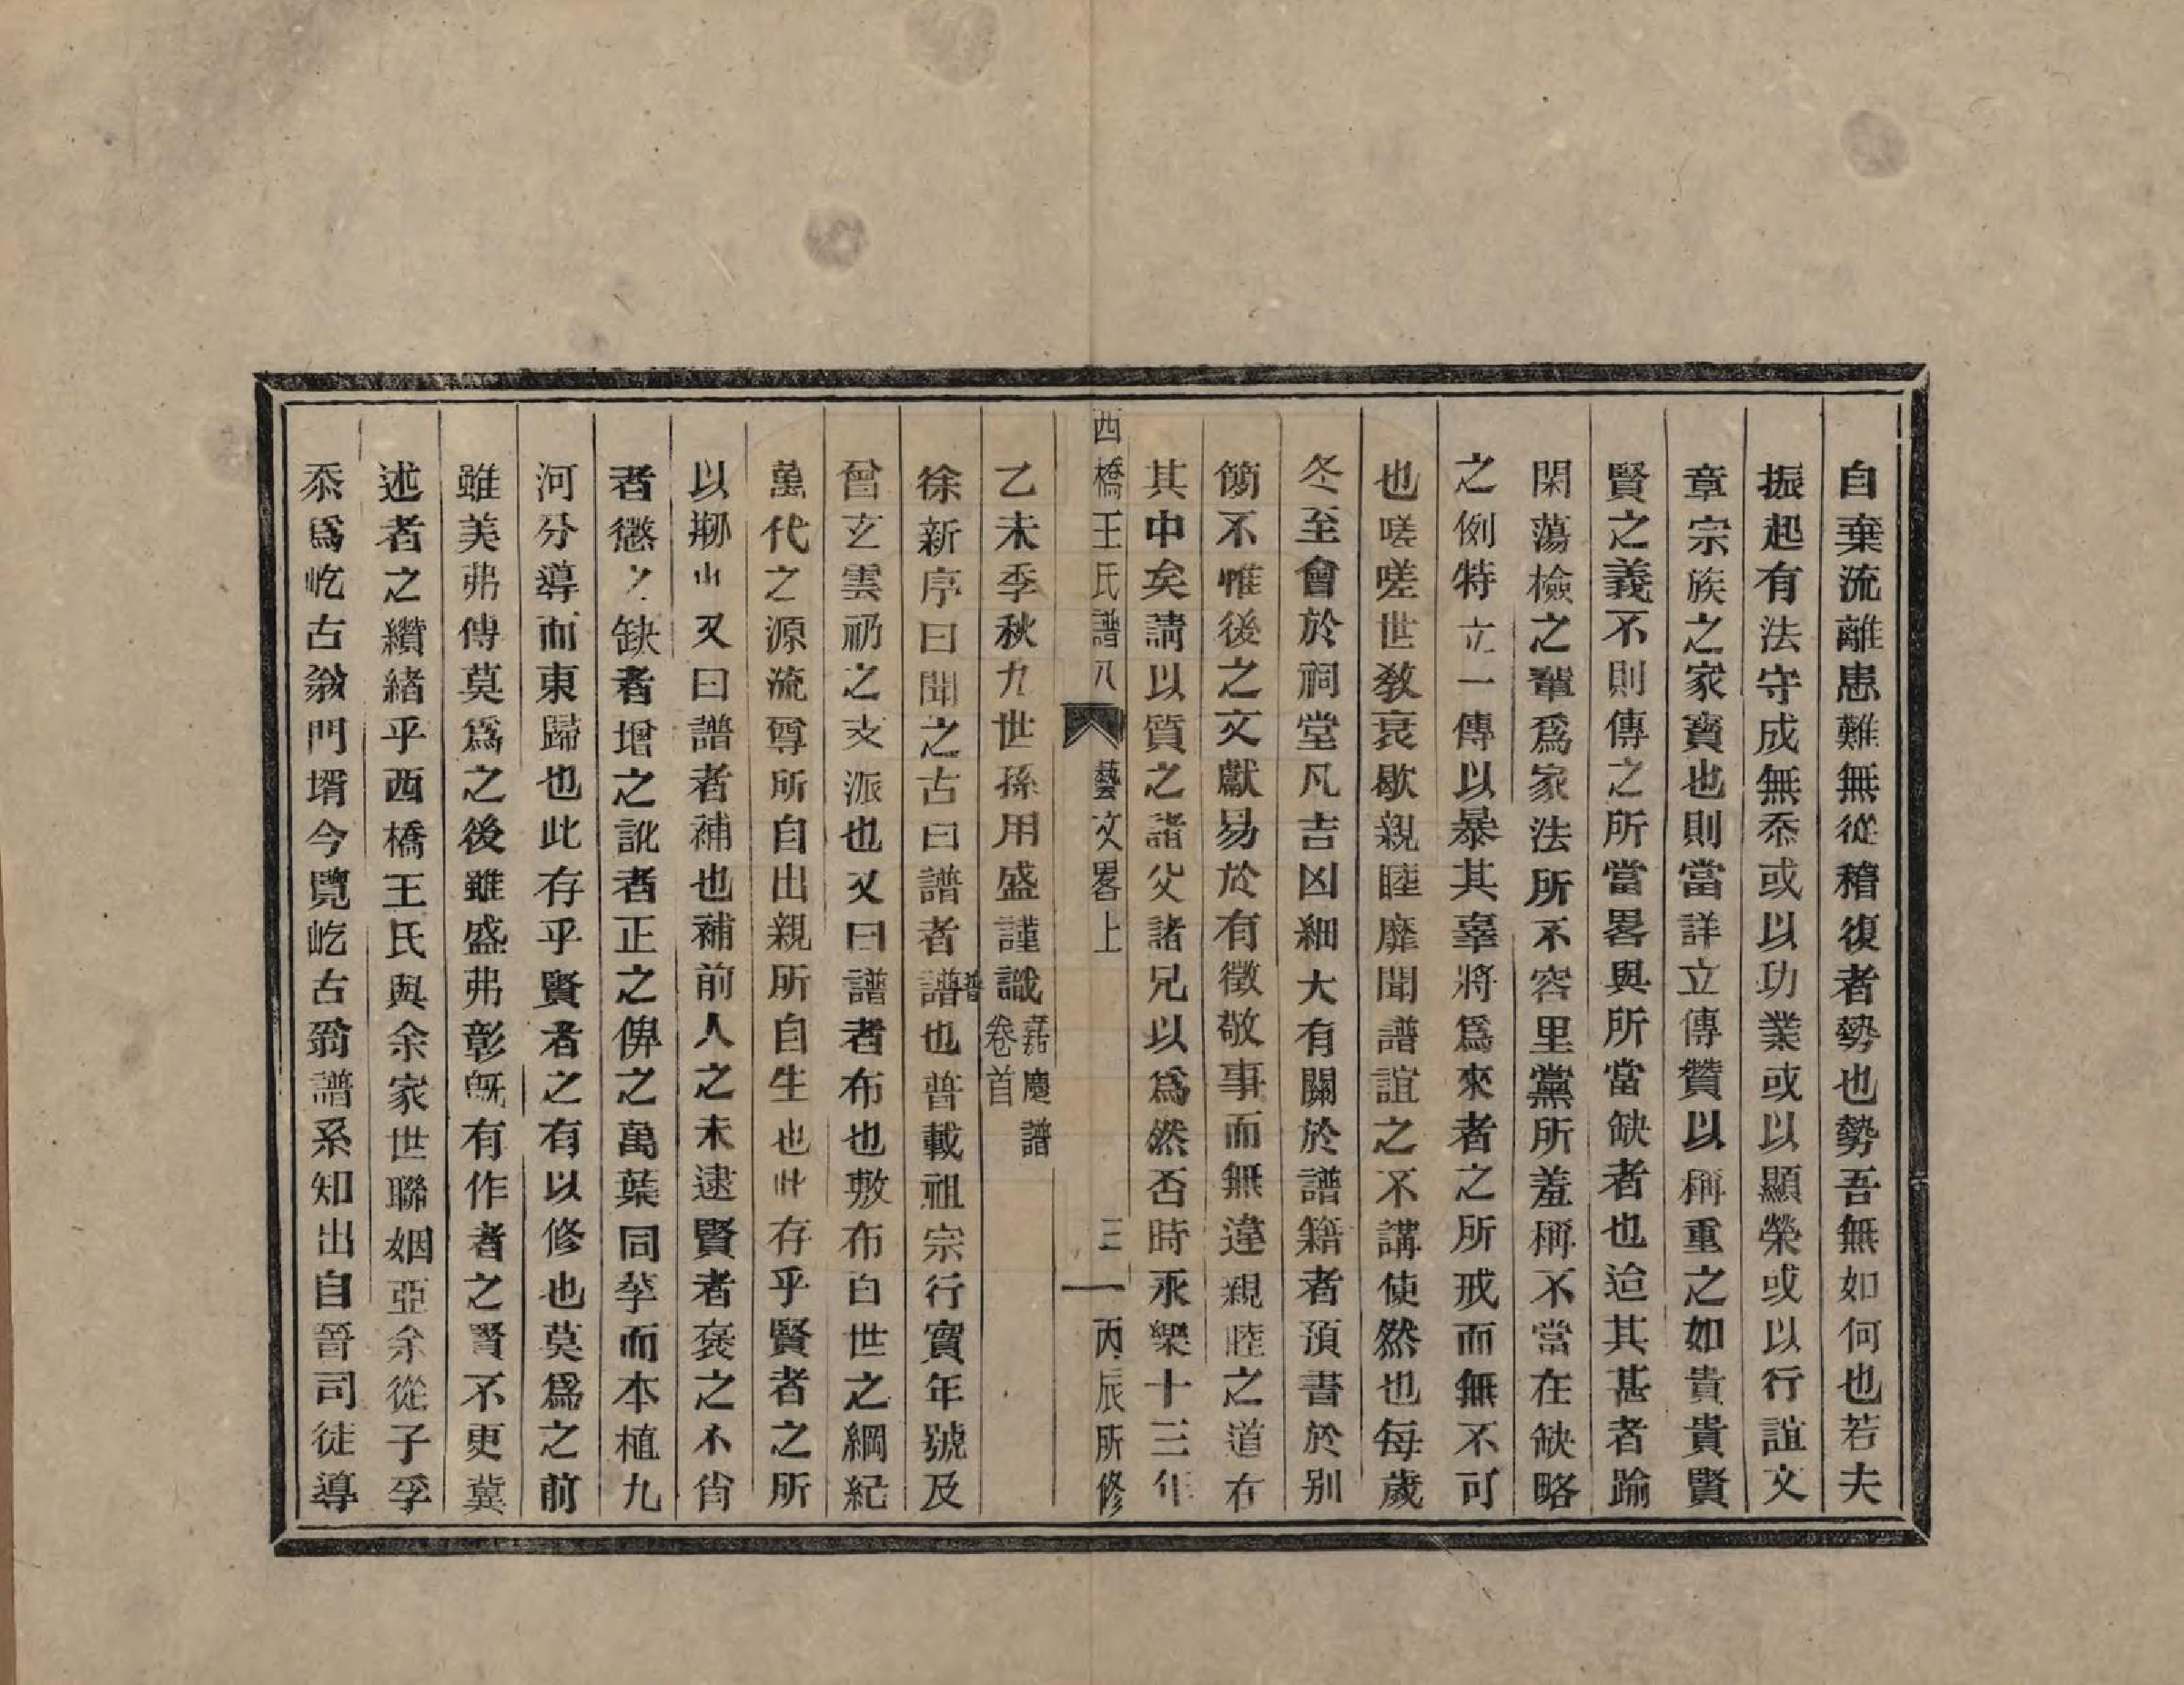 自棄流離患難無從稽復者勢也勢吾無如何也若夫
振起有法守成無忝或以功業或以顯榮或以行誼文
章宗族之家寶也則當詳立傳贊以稱重之如貴貴賢
賢之義不則傳之所當畧與所當缺者也迨其甚者踰
閑蕩檢之輩爲家法所不容里黨所羞稱不當在缺略
之例特立一傳以暴其辜將爲來者之所戒而無不可
也嗟嗟世敎衰歇親睦靡聞譜誼之不講使然也每歲
冬至會於祠堂凡吉凶細大有關於譜籍者預書於别
簡不惟後之文獻易於有徵敬事而無違親睦之道在
其中矣請以質之諸父諸兄以爲然否時永樂十三年
西橋王氏譜八 藝文畧上 三 丙辰所修
乙未季秋九世孫用盛謹識 嘉慶譜
卷首
徐新序曰聞之古曰譜者譜普也普載祖宗行實年號及
曾玄雲礽之支派也又曰譜者布也敷布百世之綱紀
萬代之源流尊所自出親所自生也此存乎賢者之所
以刱也又曰譜者補也補前人之未逮賢者褒之不肖
者懲之缺者增之訛者正之俾之萬葉同莩而本植九
河分導而東歸也此存乎賢者之有以修也莫爲之前
雖美弗傳莫爲之後雖盛弗彰旣有作者之賢不更冀
述者之纘緒乎西橋王氏與余家世聯姻亞余從子孚
忝爲屹古翁門壻今覽屹古翁譜系知出自晉司徒導